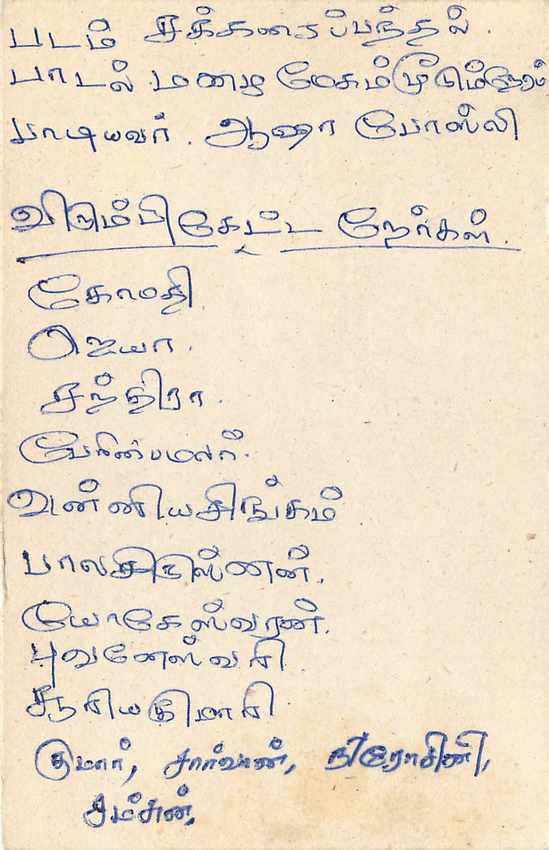 படம் சக்கரைப்பந்தல்.
பாடல் மழை மேகம்
பாடியவர். ஆஷா போஸ்லி
விரும்பி கேட்ட நேர்கள்.
கோமதி
ஜெயா.
சந்திரா.
பேரின்பமலர்.
வன்னியசிங்கம்
பாலகிருஸ்ணன்.
யோகேஸ்வரன்.
புவனேஸ்வரி
சூரியகுமாரி
குமார், சார்வான், நிரோசினி,
சம்சன்.